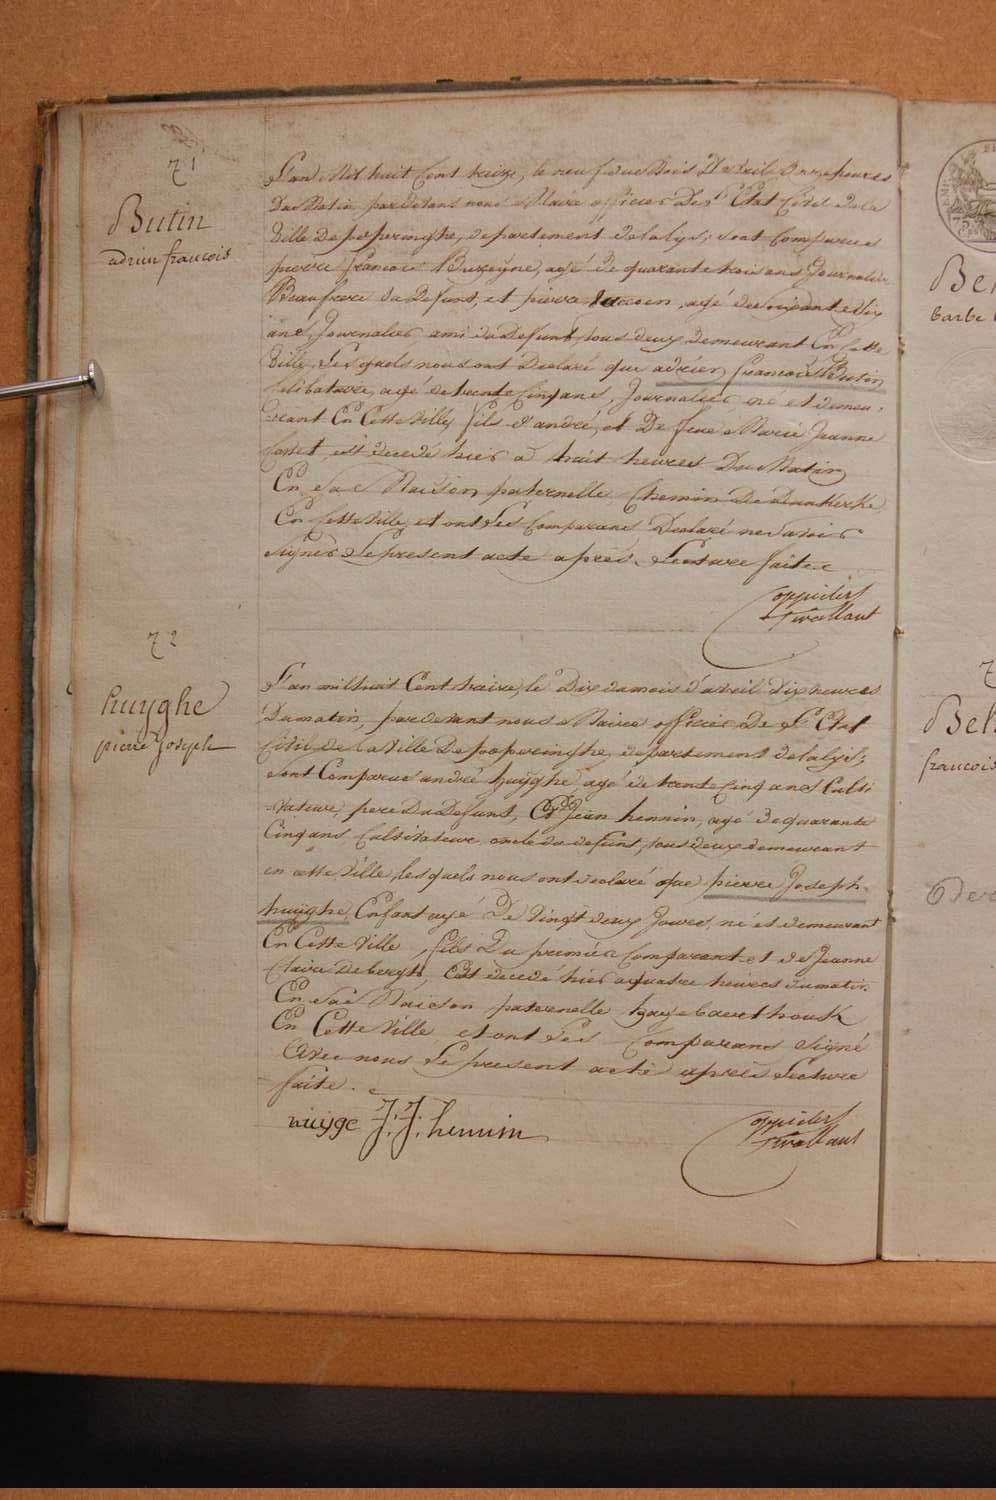 71
Butin
adrien francois
L'an Mil huit Cent treize, le neuf du Mois D'avril Onze heures
Du Matin pardevant nous Maire officier De L'Etat Civil de la
Ville De poperinghe, departement delalys, sont Comparus
pierre francois Bureyne, agé de quarante trois ans Journalier
Beaufrere du Defunt, et pierre agé de soixante dix
ans, Journalier ami du Defunt tous deux demeurant En cette
Ville, Lesquels nous ont Declaré que adrien francois Butin
celibataire, agé de trente Cinq ans, Journalier né et demeu-
-rant En Cette Ville, fils d'andré, et De feue Marie Jeanne
est decedé hier a huit heures Du Matin
En sa Maison paternelle, Chemin De
En Cette Ville, et ont Les Comparans Declaré ne savoir
signer Le present acte apres Lecture faite
72
huyghe
pierre Joseph
L'an mil huit Cent treize, le Dix du mois d'avril dix heures
Du matin, pardevant nous Maire officier De L'Etat
Civil de la Ville De poperinghe, departement delalys,
sont Comparus andré huyghe, agé de trente Cinq ans Culti
-vateur, pere Du Defunt, Et Jean hennin, agé de quarante
Cinq ans, Cultivateur, oncle du defunt, tous deux demeurant
en cette Ville, lesquels nous ont declaré que pierre Joseph
huyghe, Enfant agé De Vingt deux Jours, né et demeurant
En Cette Ville, fils Du premier Comparant et de Jeanne
Claire est decedé hier a quatre heures du matin
En sa Maison paternelle
En Cette Ville, et ont Les Comparans signé
Avec nous Le present acte apres Lecture
faite.
huyge J: J: hennin
Be
barbe
Bel
francois